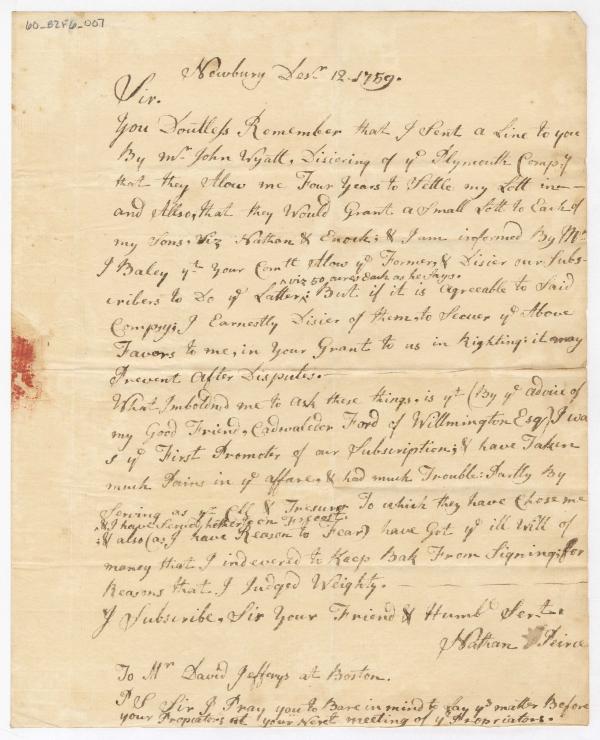 60_82F6_007
Newbury Desr 12. 1759.
Sir.
You Doutless Remember that I Sent a Line to you
By mr John Wyatt, Disiering of ye Plymouth Compy
that they Alow me Four Years to Settle my Lott in—
and Allso, that they Would Grant a Small Lott to Each of
my Sons. Viz Nathan & Enoch: & I am informed By Mr
J Baley yt Your Comtt Alow ye Former, & Disier our Subs-
^ viz 50 acres Each as he Says.
cribers to Do ye Latter; But if it is agreeable to Said
Compny; I Earnestly Disier of them, to Secuer ye Above
Favors to me, in Your Grant to us in Righting: it may
Prevent After Disputes.-
What Imboldend me to Ask these things, is yt (By ye advice of
my Good Friend, Cadwaleder Ford of Willmington Esqr) I wa
s ye First Promoter of our Subscription; & have Taken
much Pains in ye affare, & had much Trouble: Partly By
Serving as yr Clk & Tresurer To which they have Chose me
^ & I have Served
: & also (as I have Reason to Fear) have Got ye ill Will of
money that I indevered to Keep Bak From Signing: for
Reasons that I Judged Weighty.
I Subscribe, Sir Your Friend & Humbl Sert.
Nathan Peirce
To Mr David Jefferys at Boston.
PS Sir I Pray you to Bare in mind to Lay ys matter Before
your Propriators at your Next meeting of ye Propriators.